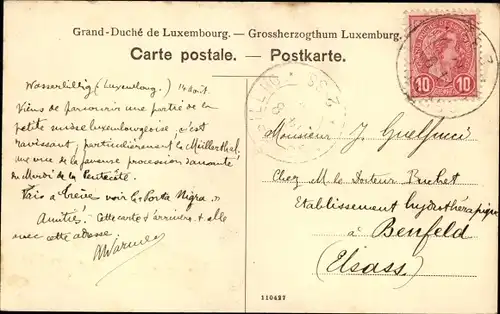 Grand-Duché de Luxembourg. — Grossherzogthum Luxemburg.
Carte postale. — Postkarte.
10 10
Wasserbillig (Luxembourg) 14 août.
Viens de parcourir une partie de la
petite suisse luxembourgeoise, c'est
ravissant, particulièrement le Müllerthal,
une vue de la fameuse procession dansante
du Mardi de la Pentecôte.
Vais à Trèves voir la Porta Nigra.
Amitiés. Cette carte arrivera elle
avec cette adresse.
Monsieur J. Guelfucci
Chez M. le Docteur Bucket
Etablissement hydrothérapique
à Benfeld
(Elsass)
110427